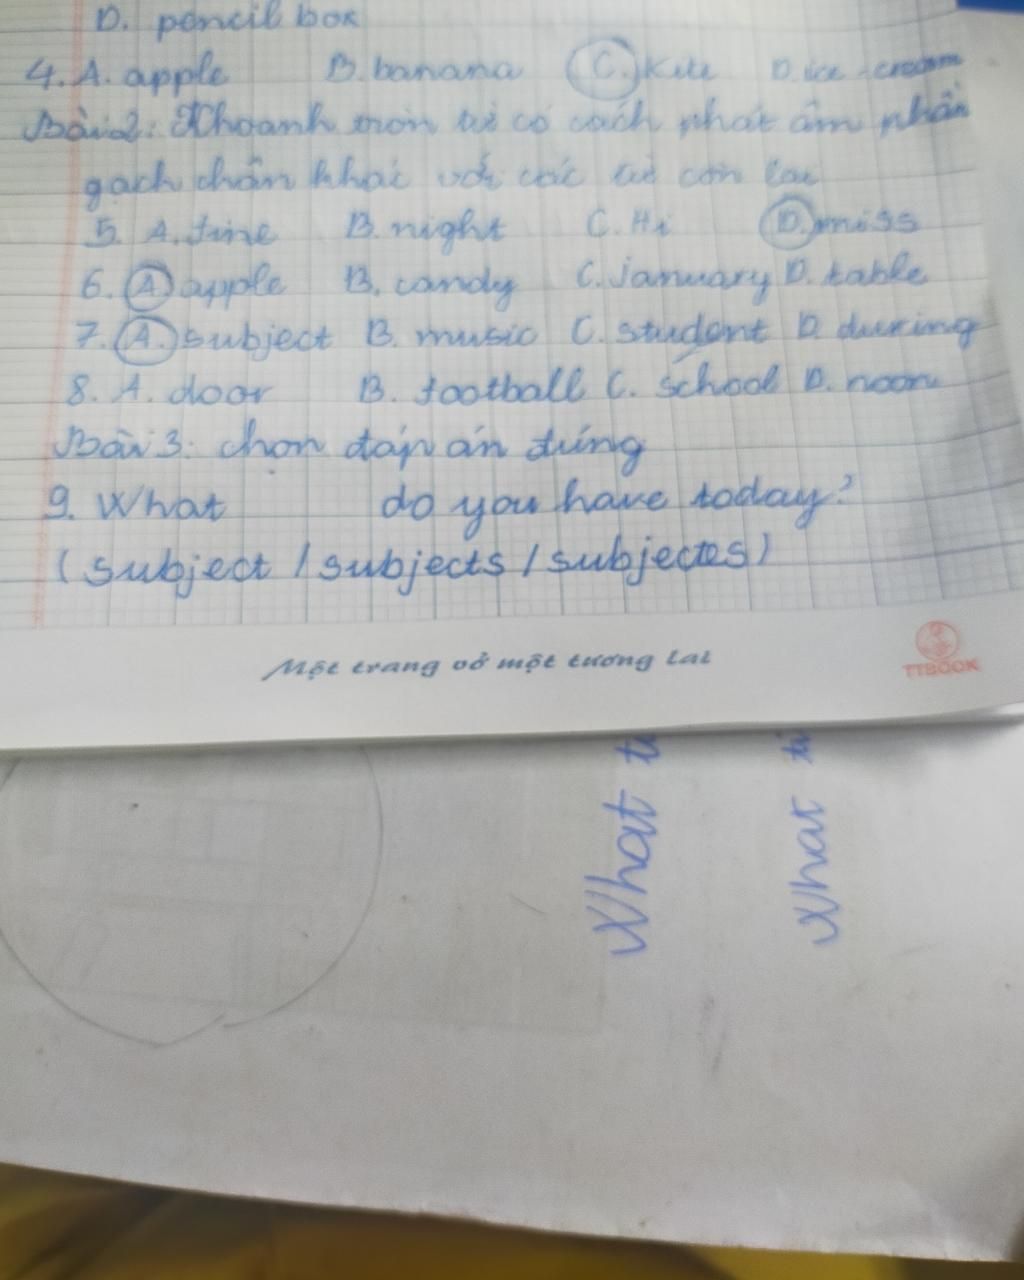 D. pencil box
4. A. apple B. banana C. kite D. ice-cream
Bài 2: Khoanh tròn từ có cách phát âm phần
gạch chân khác với các từ còn lại
5. A. fine B. night C. Hi D. miss
6. A. apple B. candy C. january D. table
7. A. subject B. music C. student D. during
8. A. door B. football C. school D. noon
Bài 3: chọn đáp án đúng
9. What do you have today?
(subject / subjects / subjectes)
Một trang vở một tương lai
TTBOOK
What
What